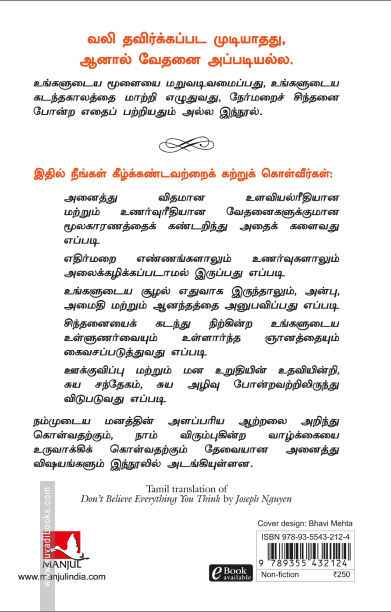 வலி தவிர்க்கப்பட முடியாதது,
ஆனால் வேதனை அப்படியல்ல.
உங்களுடைய மூளையை மறுவடிவமைப்பது, உங்களுடைய
கடந்தகாலத்தை மாற்றி எழுதுவது, நேர்மறைச் சிந்தனை
போன்ற எதைப் பற்றியதும் அல்ல இந்நூல்.
இதில் நீங்கள் கீழ்க்கண்டவற்றைக் கற்றுக் கொள்வீர்கள்:
அனைத்து விதமான உளவியல்ரீதியான
மற்றும் உணர்வுரீதியான வேதனைகளுக்குமான
மூலகாரணத்தைக் கண்டறிந்து அதைக் களைவது
எப்படி
எதிர்மறை எண்ணங்களாலும் உணர்வுகளாலும்
அலைக்கழிக்கப்படாமல் இருப்பது எப்படி
உங்களுடைய சூழல் எதுவாக இருந்தாலும், அன்பு,
அமைதி மற்றும் ஆனந்தத்தை அனுபவிப்பது எப்படி
சிந்தனையைக் கடந்து நிற்கின்ற உங்களுடைய
உள்ளுணர்வையும் உள்ளார்ந்த ஞானத்தையும்
கைவசப்படுத்துவது எப்படி
ஊக்குவிப்பு மற்றும் மன உறுதியின் உதவியின்றி,
சுய சந்தேகம், சுய அழிவு போன்றவற்றிலிருந்து
விடுபடுவது எப்படி
நம்முடைய மனத்தின் அளப்பரிய ஆற்றலை அறிந்து
கொள்வதற்கும், நாம் விரும்புகின்ற வாழ்க்கையை
உருவாக்கிக் கொள்வதற்கும் தேவையான அனைத்து
விஷயங்களும் இந்நூலில் அடங்கியுள்ளன.
Tamil translation of
Don't Believe Everything You Think by Joseph Nguyen
Cover design: Bhavi Mehta
ISBN 978-93-5543-212-4
9 789355 432124
MANJUL
www.manjulindia.com
eBook
available
Non-fiction ₹250